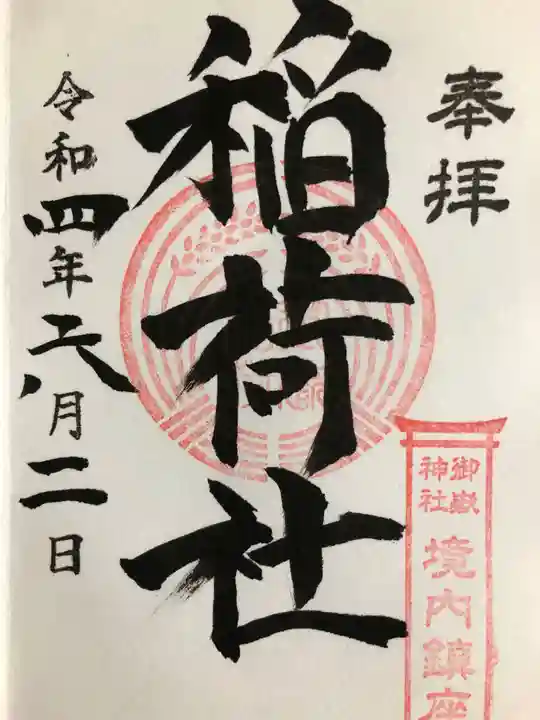 奉拝
御嶽神社
境内鎮座
稲荷社
令和四年六月二日